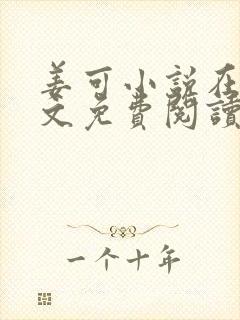 姜可小说在
文免費閱讀
一个十年